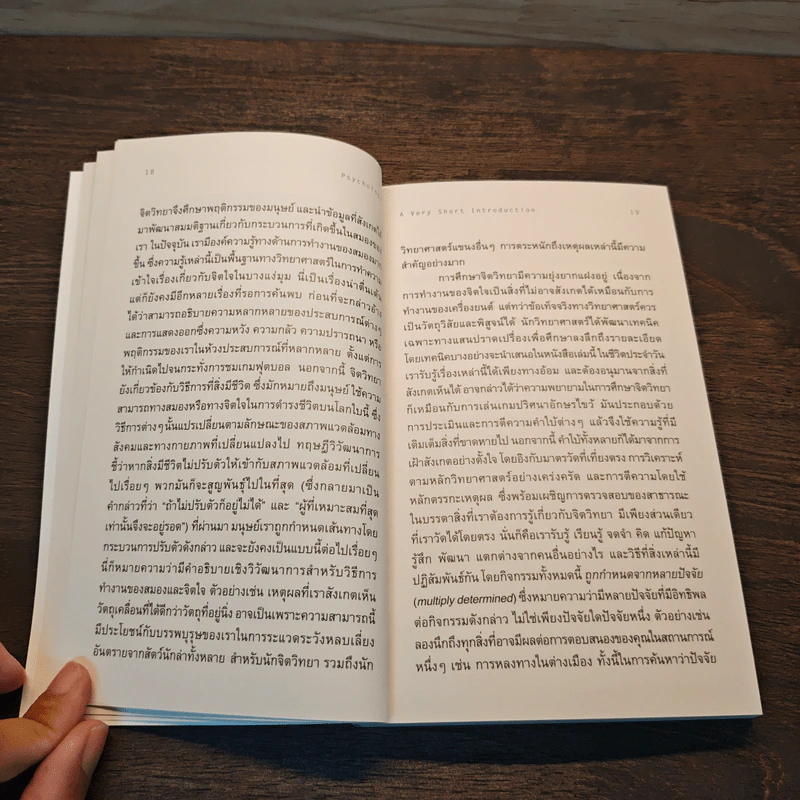 18
จิตวิทยาจึงศึกษาพฤติกรรมของมนุษย์ และนำข้อมูลที่สังเกตได้
มาพัฒนาสมมติฐานเกี่ยวกับกระบวนการที่เกิดขึ้นในสมองของ
เรา ในปัจจุบัน เรามีองค์ความรู้ทางด้านการทำงานของสมองมาก
ขึ้น ซึ่งความรู้เหล่านี้เป็นพื้นฐานทางวิทยาศาสตร์ในการทำความ
เข้าใจเรื่องเกี่ยวกับจิตใจในบางแง่มุม นี่เป็นเรื่องน่าตื่นเต้น
แต่ก็ยังคงมีอีกหลายเรื่องที่รอการค้นพบ ก่อนที่จะกล่าวอ้าง
ได้ว่าสามารถอธิบายความหลากหลายของประสบการณ์ต่างๆ
และการแสดงออกซึ่งความหวัง ความกลัว ความปรารถนา หรือ
พฤติกรรมของเราในห้วงประสบการณ์ที่หลากหลาย ตั้งแต่การ
ให้กำเนิดไปจนกระทั่งการชมเกมฟุตบอล นอกจากนี้ จิตวิทยา
ยังเกี่ยวข้องกับวิธีการที่สิ่งมีชีวิต ซึ่งมักหมายถึงมนุษย์ ใช้ความ
สามารถทางสมองหรือทางจิตใจในการดำรงชีวิตบนโลกใบนี้ ซึ่ง
วิธีการต่างๆ นั้นแปรเปลี่ยนตามลักษณะของสภาพแวดล้อมทาง
สังคมและทางกายภาพที่เปลี่ยนแปลงไป ทฤษฎีวิวัฒนาการ
ชี้ว่าหากสิ่งมีชีวิตไม่ปรับตัวให้เข้ากับสภาพแวดล้อมที่เปลี่ยน
ไปเรื่อยๆ พวกมันก็จะสูญพันธุ์ไปในที่สุด (ซึ่งกลายมาเป็น
คำกล่าวที่ว่า “ถ้าไม่ปรับตัวก็อยู่ไม่ได้” และ “ผู้ที่เหมาะสมที่สุด
เท่านั้นจึงจะอยู่รอด”) ที่ผ่านมา มนุษย์เราถูกกำหนดเส้นทางโดย
กระบวนการปรับตัวดังกล่าว และจะยังคงเป็นแบบนี้ต่อไปเรื่อยๆ
นี่ก็หมายความว่ามีคำอธิบายเชิงวิวัฒนาการสำหรับวิธีการ
ทำงานของสมองและจิตใจ ตัวอย่างเช่น เหตุผลที่เราสังเกตเห็น
วัตถุเคลื่อนที่ได้ดีกว่าวัตถุที่อยู่นิ่ง อาจเป็นเพราะความสามารถนี้
มีประโยชน์กับบรรพบุรุษของเราในการระแวดระวังหลบเลี่ยง
อันตรายจากสัตว์นักล่าทั้งหลาย สำหรับนักจิตวิทยา รวมถึงนัก
A Very Short Introduction 19
วิทยาศาสตร์แขนงอื่นๆ การตระหนักถึงเหตุผลเหล่านี้มีความ
สำคัญอย่างมาก
การศึกษาจิตวิทยามีความยุ่งยากแฝงอยู่ เนื่องจาก
การทำงานของจิตใจเป็นสิ่งที่ไม่อาจสังเกตได้เหมือนกับการ
ทำงานของเครื่องยนต์ แต่ทว่าข้อเท็จจริงทางวิทยาศาสตร์ควร
เป็นวัตถุวิสัยและพิสูจน์ได้ นักวิทยาศาสตร์ได้พัฒนาเทคนิค
เฉพาะทางแสนปราดเปรื่องเพื่อศึกษาลงลึกถึงรายละเอียด
โดยเทคนิคบางอย่างจะนำเสนอในหนังสือเล่มนี้ ในชีวิตประจำวัน
เรารับรู้เรื่องเหล่านี้ได้เพียงทางอ้อม และต้องอนุมานจากสิ่งที่
สังเกตเห็นได้ อาจกล่าวได้ว่าความพยายามในการศึกษาจิตวิทยา
ก็เหมือนกับการเล่นเกมปริศนาอักษรไขว้ มันประกอบด้วย
การประเมินและการตีความคำใบ้ต่างๆ แล้วจึงใช้ความรู้ที่มี
เติมเต็มสิ่งที่ขาดหายไป นอกจากนี้ คำใบ้ทั้งหลายก็ได้มาจากการ
เฝ้าสังเกตอย่างตั้งใจ โดยอิงกับมาตรวัดที่เที่ยงตรง การวิเคราะห์
ตามหลักวิทยาศาสตร์อย่างเคร่งครัด และการตีความโดยใช้
หลักตรรกะเหตุผล ซึ่งพร้อมเผชิญการตรวจสอบของสาธารณะ
ในบรรดาสิ่งที่เราต้องการรู้เกี่ยวกับจิตวิทยา มีเพียงส่วนเดียว
ที่เราวัดได้โดยตรง นั่นก็คือเรารับรู้ เรียนรู้ จดจำ คิด แก้ปัญหา
รู้สึก พัฒนา แตกต่างจากคนอื่นอย่างไร และวิธีที่สิ่งเหล่านี้มี
ปฏิสัมพันธ์กัน โดยกิจกรรมทั้งหมดนี้ ถูกกำหนดจากหลายปัจจัย
(multiply determined) ซึ่งหมายความว่ามีหลายปัจจัยที่มีอิทธิพล
ต่อกิจกรรมดังกล่าว ไม่ใช่เพียงปัจจัยใดปัจจัยหนึ่ง ตัวอย่างเช่น
ลองนึกถึงทุกสิ่งที่อาจมีผลต่อการตอบสนองของคุณในสถานการณ์
หนึ่งๆ เช่น การหลงทางในต่างเมือง ทั้งนี้ในการค้นหาว่าปัจจัย